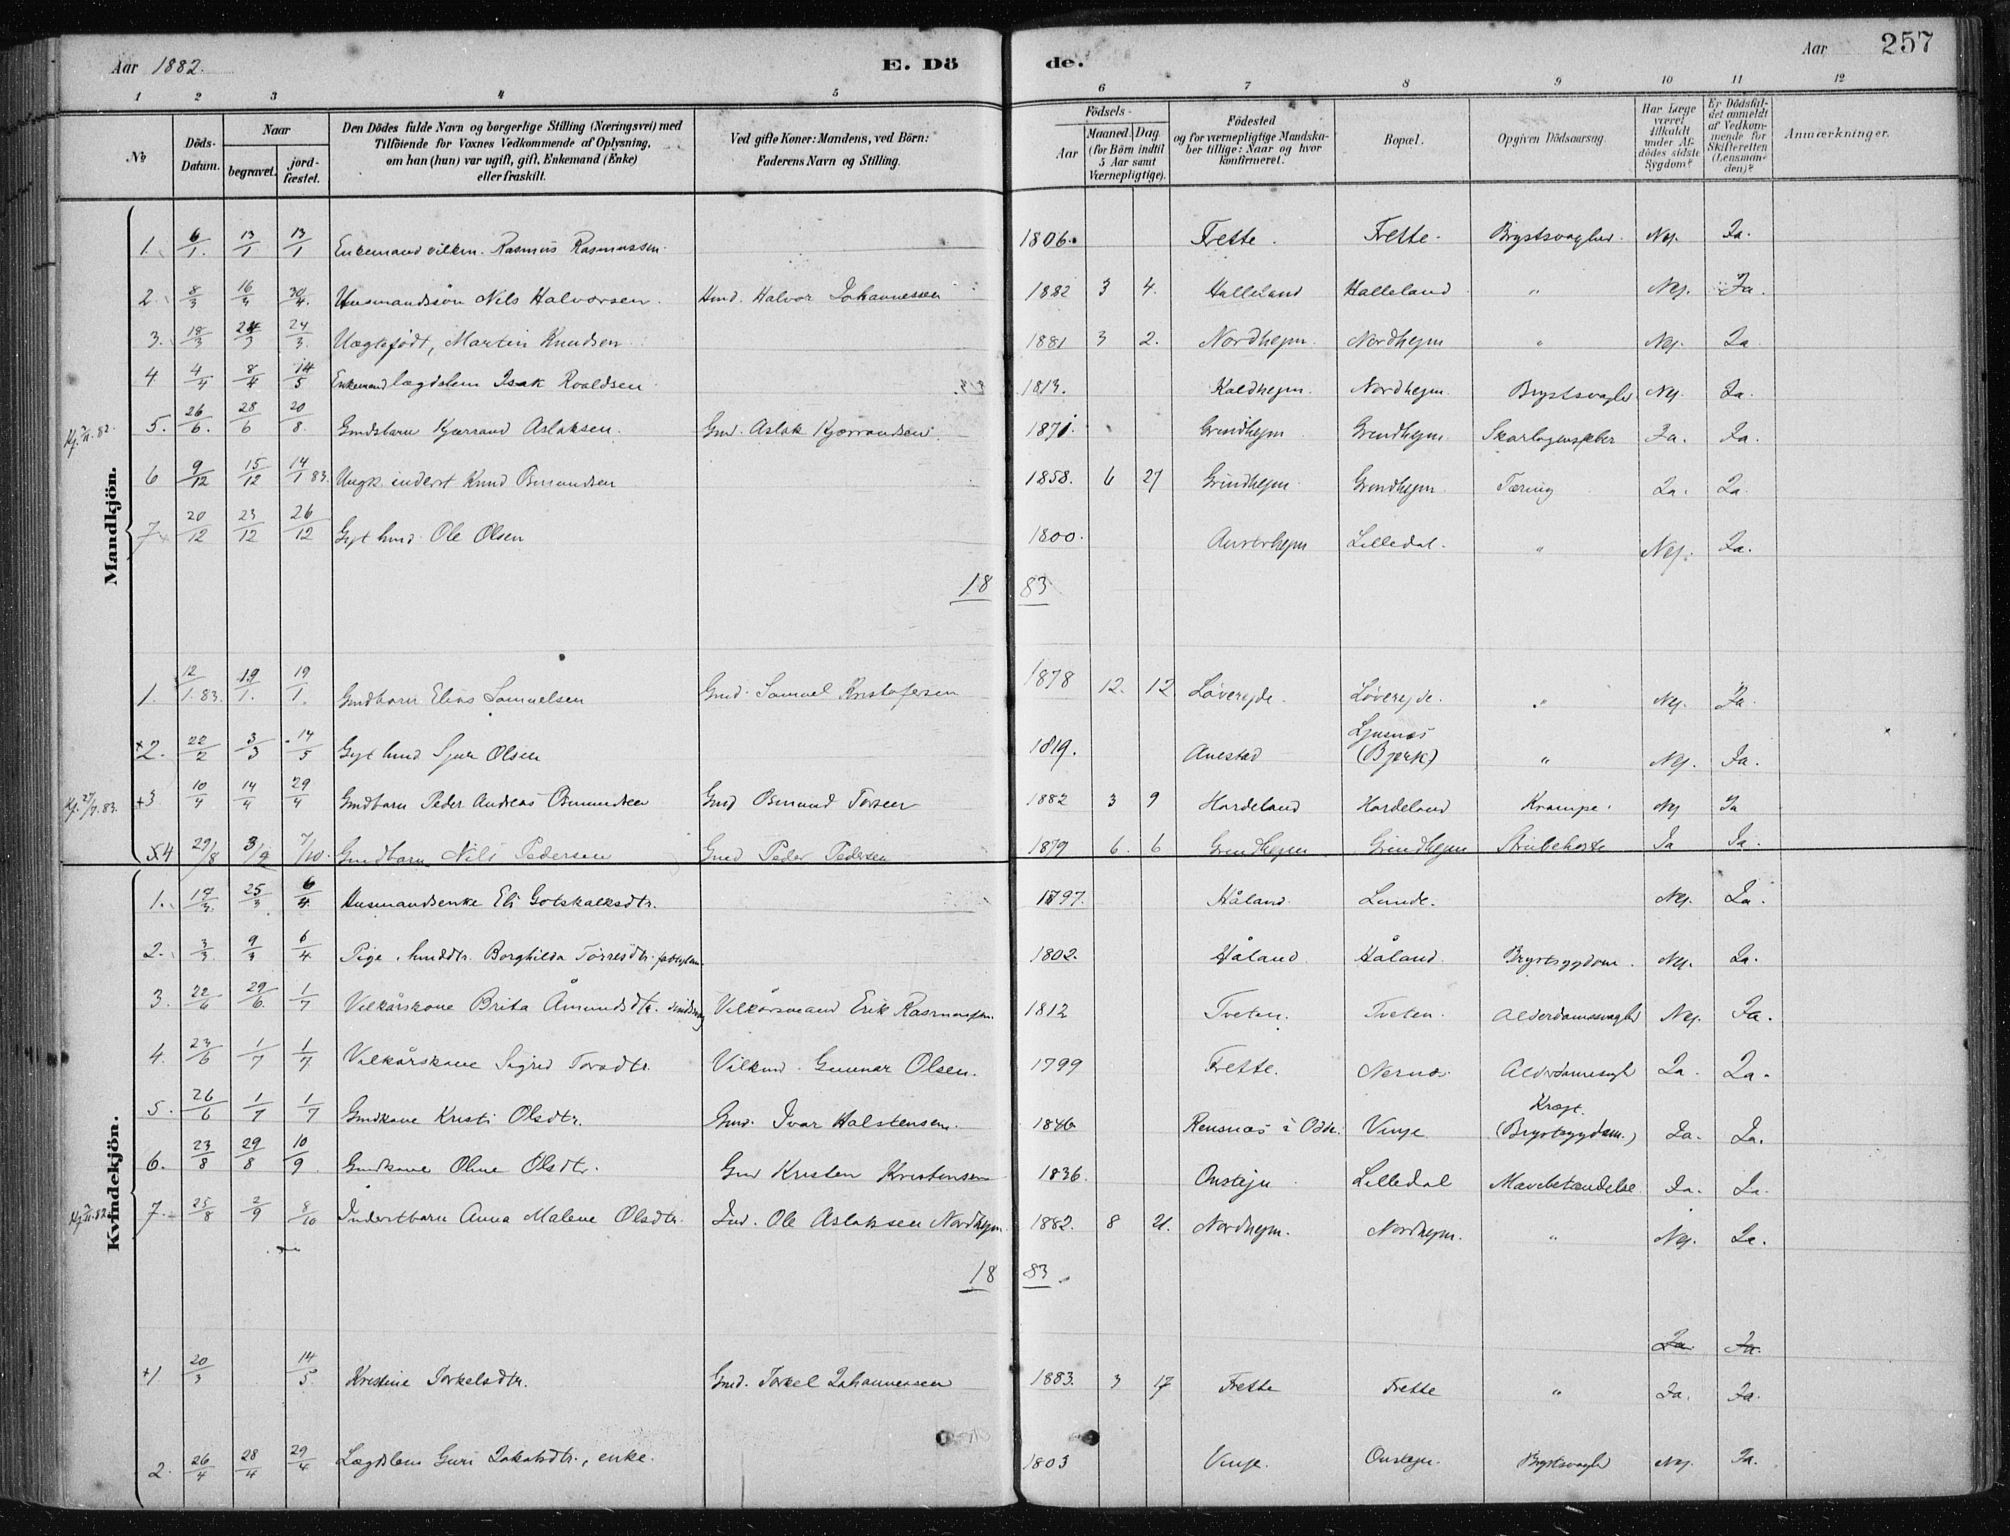 Aar 1882. E. Dö de. Aar 257
1 2 3 4 5 6 7 8 9 10 11 12
No
Döds-Datum.
Naar
begravet.
jord-fæstet.
Den Dödes fulde Navn og borgerlige Stilling (Næringsvei) med
Tilföiende for Voxnes Vedkommende af Oplysning,
om han (hun) var ugift, gift, Enkemand (Enke)
eller fraskilt.
Ved gifte Koner: Mandens, ved Börn:
Faderens Navn og Stilling.
Födsels-
Aar
Maaned. Dag.
(for Börn indtil
5 Aar samt
Værnepligtige).
Födested
og for værnepligtige Mandska-
ber tillige: Naar og hvor
konfirmeret.
Bopæl.
Opgiven Dödsaarsag.
Har Læge
været
tilkaldt
under Af-
dödes sidste
Sygdom?
Er Dödsfal-
det anmeldt
af Vedkom-
mende for
Skifteretten
(Lensman-
den)?
Anmærkninger.
Mandkjön.
1. 6/1. 13/1 13/1 Enkemand vilkm. Rasmus Rasmussen 1806. Frette. Frette. Brystsvaghed. Nej. Ja.
2. 8/3 16/3 30/4. Husmandssön Nils Halvorsen. Hmd. Halvor Johannessen 1882 3 4. Halleland Halleland " Nej. Ja.
3. 18/3 24/3 24/3. Uægtefödt, Martin Knudsen 1881 3 2. Nordhejm. Nordhejm " Nej. Ja
4 4/4 8/4 14/5 Enkemand lægdslem Isak Roaldsen 1813. Kaldhejm. Nordhejm. Brystsvaghed Nej. Ja.
5. 26/6. 28/6 20/8. Gmdsbarn Kjærrand Aslaksen. Gmd. Aslak Kjærrandsen. 1871. Grindhejm. Grindhejm Skarlagensfeber Ja. Ja.
6 9/12 15/12 14/1 83. Ungk. inderst Knud Osmundsen 1858. 6 27 Grindhejm. Grindhejm. Tæring Ja. Ja
7 20/12 23/12 26/12 Gift hmd. Ole Olsen 1800. Austerhejm Lilledal. " Nej. Ja.
18 83
1. 12/1. 83. 19/1. 19/1. Gmdbarn Elias Samuelsen Gmd. Samuel Kristofersen 1878 12. 12 Løverejde. Løverejde. " Nej. Ja.
+2. 22/2 3/3 14/5 Gift hmd Sjur Olsen 1819. Anestad Ljusnæs (Bjørk) " Nej. Ja.
+3 10/4 14/4 29/4 Gmdbarn Peder Andreas Osmundsen Gmd Osmund Torsen 1882 3 9 Hardeland Hardeland Krampe. Nej Ja
+4 29/8 3/9 7/10. Gmdbarn Nils Pedersen Gmd Peder Pedersen 1879 6. 6 Grindhejm Grindhejm Strubehoste Ja Ja.
Kvindekjön.
1. 17/3. 25/3 6/4. Husmandsenke Eli Gotskalksdtr. 1797. Håland Lunde. Nej. Ja.
2. 3/3 9/3 6/4 Pige. hmddtr. Borghilda Tørresdtr. 1802. Håland Håland. Brystsygdom. Nej. Ja.
3. 22/6 29/6. 1/7 Vilkårskone Brita Åmundsdtr. Vilkårsmand Erik Rasmussen. 1812 Tveten. Tveten. Alderdomssvaghed Nej. Ja.
4. 23/6 1/7 1/7. Vilkårskone Sigrid Torsdtr. Vilkmd. Gunnar Olsen. 1799 Frette. Nernes. Alderdomssvagh Ja. Ja.
5. 26/6 1/7 1/7 Gmdkone Kristi Olsdtr. Gmd. Ivar Halstensen. 1846 Rensnæs i Odde. Vinje Kræft. (Brystsygdom.) Ja. Ja.
6. 23/8 29/8 10/9 Gmdkone Oline Olsdtr. Gmd Kristen Kristensen 1836. Onstejn Lilledal Mavebetændelse Ja. Ja.
7. 25/8 2/9 8/10 Inderstbarn Anna Malene Olsdtr. Ind. Ole Aslaksen Nordhejm. 1882. 8 21. Nordhejm. Nordhejm. " Nej. Ja.
18 83.
Ja. Ja.
+1 20/3 14/5. Kristine Torkelsdtr. Gmd. Torkel Johannessen 1883. 3 17 Frette Frette " Ja. Ja.
2. 26/4 28/4 29/4 Lægdslem Guri Jakobsdtr., enke. 1803 Vinje. Onstejn. Brystsvaghed Nej. Ja.